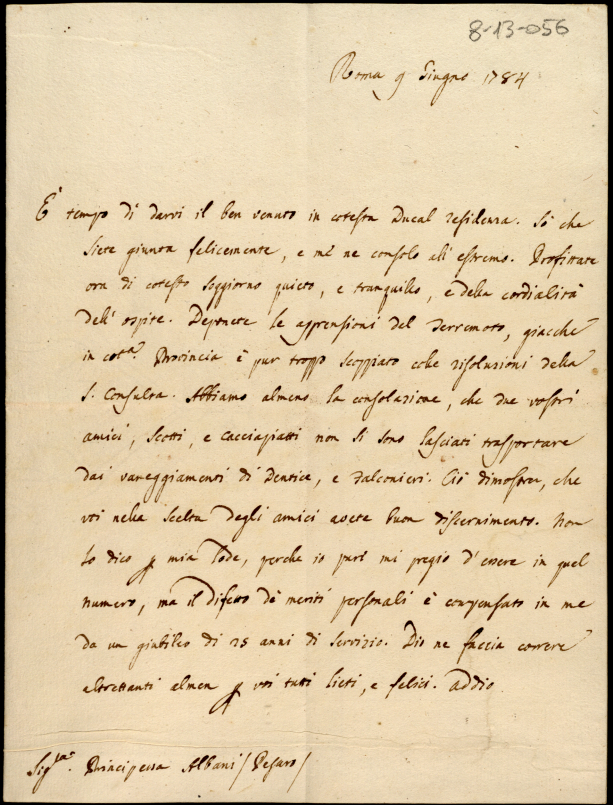 8-13-056
Roma 9 Giugno 1784
È tempo di darvi il ben venuto in cotesta Ducal residenza. Sò che
siete giunta felicemente, e mè ne consolo all' estremo. Profittate
ora di cotesto soggiorno quieto, e tranquillo, e della cordialità
dell' ospite. Deponete le apprensioni del Terremoto, giacchè
in cot.ta Provincia è pur troppo scoppiato colle risoluzioni della
S. Consulta. Abbiamo almeno la consolazione, che due vostri
amici, Scotti, e Cacciapiatti non si sono lasciati trasportare
dai vaneggiamenti di Dentice, e Falconieri. Ciò dimostra, che
voi nella scelta degli amici avete buon discernimento. Non
lo dico p mia lode, perche io pure mi pregio d' essere in quel
numero, ma il difetto dè meriti personali è compensato in me
da un giubileo di 25 anni di servizio. Dio ne faccia correre
altrettanti almen p voi tutti lieti, e felici. Addio
Sig.ra Principessa Albani / Pesaro /